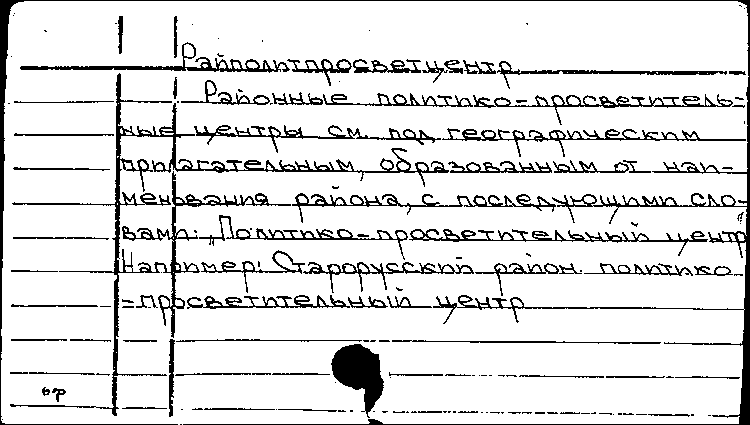 Райполитпросветцентр
Районные политико-просветитель-
ные центры см. под географическим
прилагательным, образованным от наи-
менования района, с последующими сло-
вами: „Политико-просветительный центр
Например: Старорусский район. политико
-просветительный центр